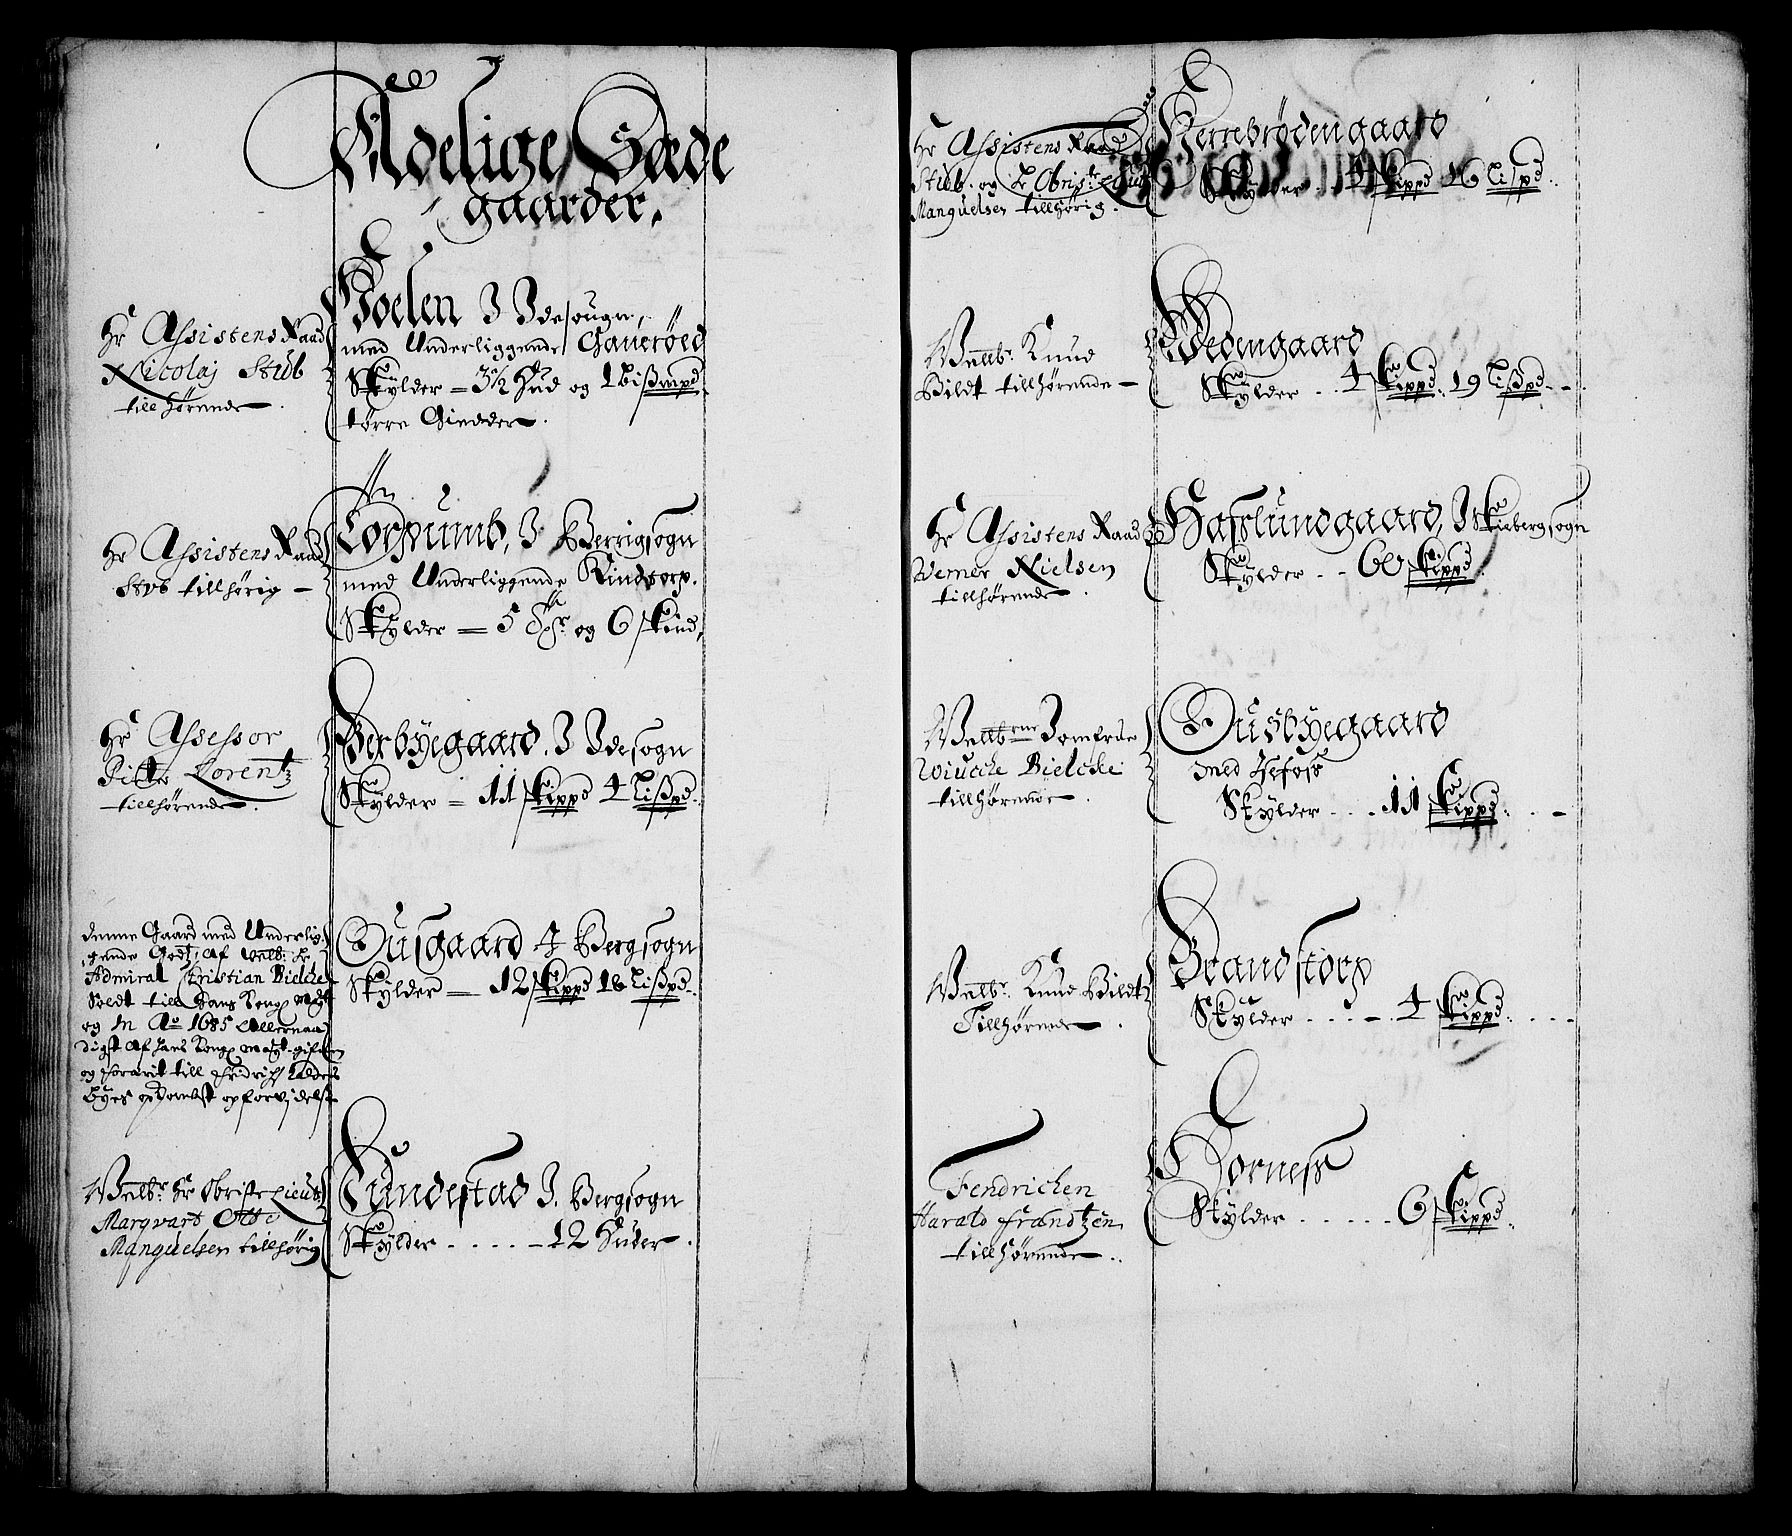 Adelige Sæde
gaarder.
Hr Assistens Raad
Nicolaj Stub
tillhørende.
Hoelen I Idesougn,
med Underliggende
Skylder = 3½ Hud og 1 Bißmpd
tørre Giedder.
Hr Assistens Raad
Stub tillhørig
Torpumb, I Berrigsogn
med Underliggende Kindtorp.
Skylder = 5 og 6 skind,
Hr Assessor
Lorentz
tillhørende.
Berbyegaard. I Idesogn
Skylder = 11 skippd 4 Lißpd.
denne Gaard med Underlig
gende Af Velb:
Admiral Christian Bielche
Soldt till Hans Kongl Mayt
og in Ao 1685 Allernaa
digst Af Hans Kongl Mayt gifven
og till Fridrich
Byes
Ousgaard I Bergsogn
Skylder = 12 skippd 16 Lißpd.
Velbr: Hr Obriste Lieut:
Marqvart Otto
Manguelsen tillhørig
Lundestad I. Bergsogn
Skylder - - - - - 12 Huder.
Hr Assistens Raad
Stub. og Hr Obriste Lieut
Manguelsen tillhørig.
Herrebrødengaard
Skylder skippd 16 Lispd.
Velbr: Knud
Bildt tillhørende
Wedengaard
Skylder - - 4 skippd. 19 Lißpd.
Hr Assistens Raad
Werner Nielsen
tillhørende.
Hafslundgaard, I Skiebergsogn
Skylder - - 60 skippd.
Velbrne Jomfrue
Wiucche Bielcke
tillhørende.
Ousbyegaard
med
Skylder - - - 11 skippd.
Velbr: Knud Bildt
Tillhørende.
Brandstorp
Skylder - - - - - 4 skippd.
Fendrichen
Harald Frandtzen
tillhørende.
Torness
Skylder - - - - - 6 skippd.